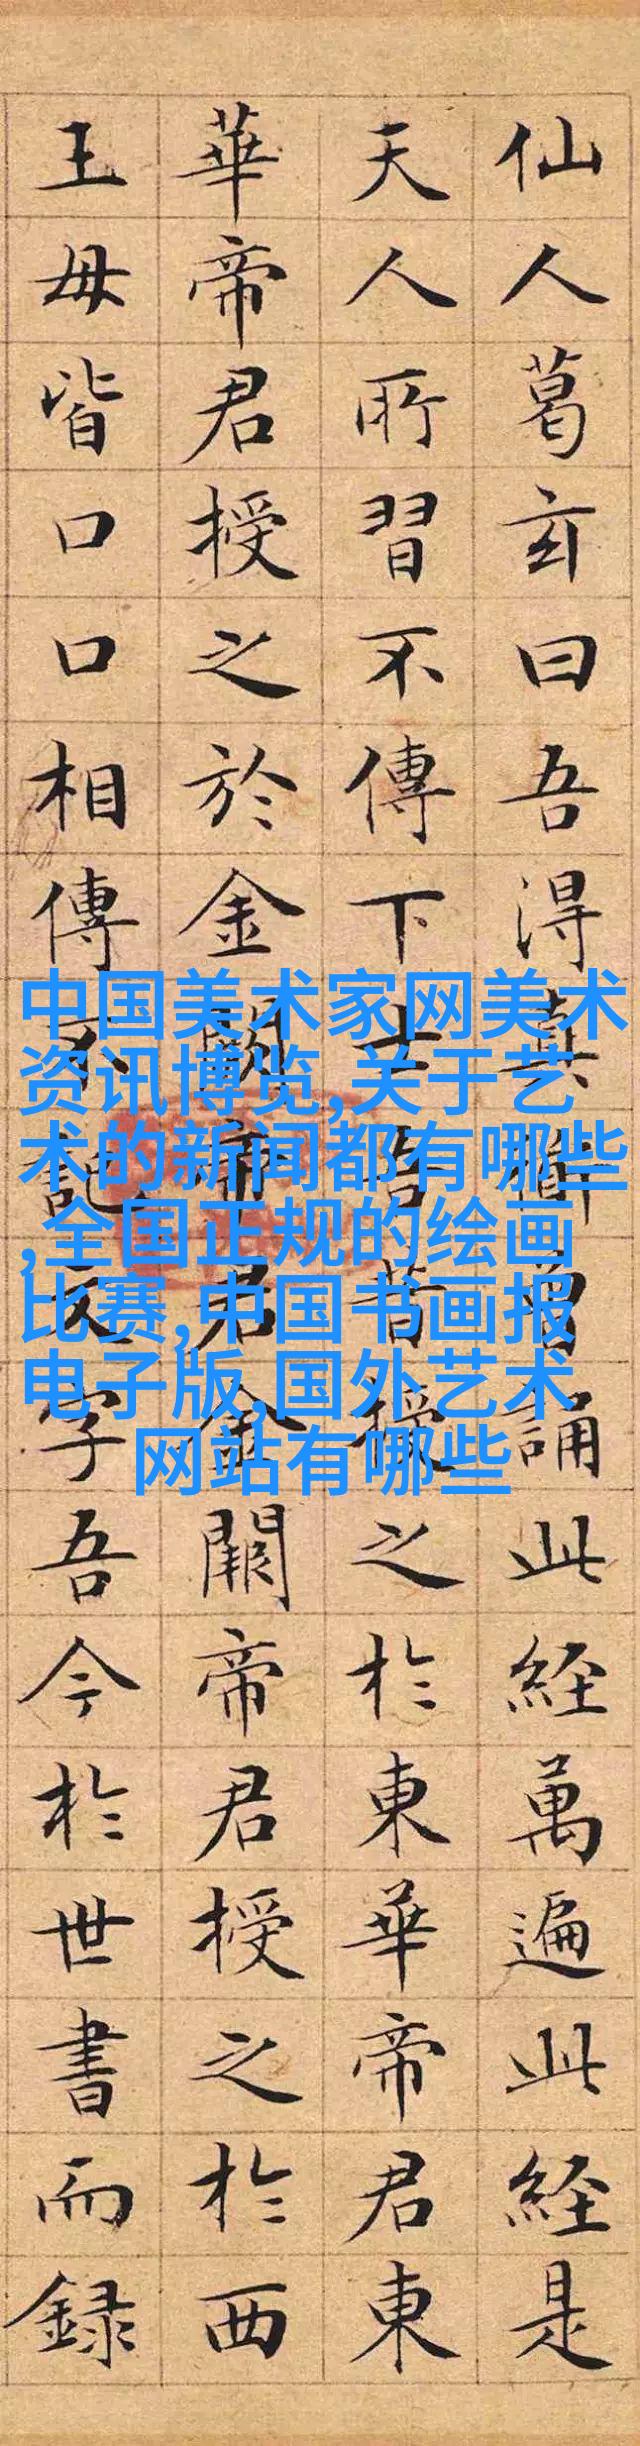 仙人葛玄曰吾得真道曾誦此經萬遍此經是
天人所習不傳下士吾昔授之於東華帝君東
華帝君授之於金闕帝君金闕帝君授之於西
王母皆口口相傳不記文字吾今於世書而録
中国美术家网美术
资讯博览,关于艺
术的新闻都有哪些
,全国正规的绘画
比赛,中国书画报
电子版,国外艺术
网站有哪些